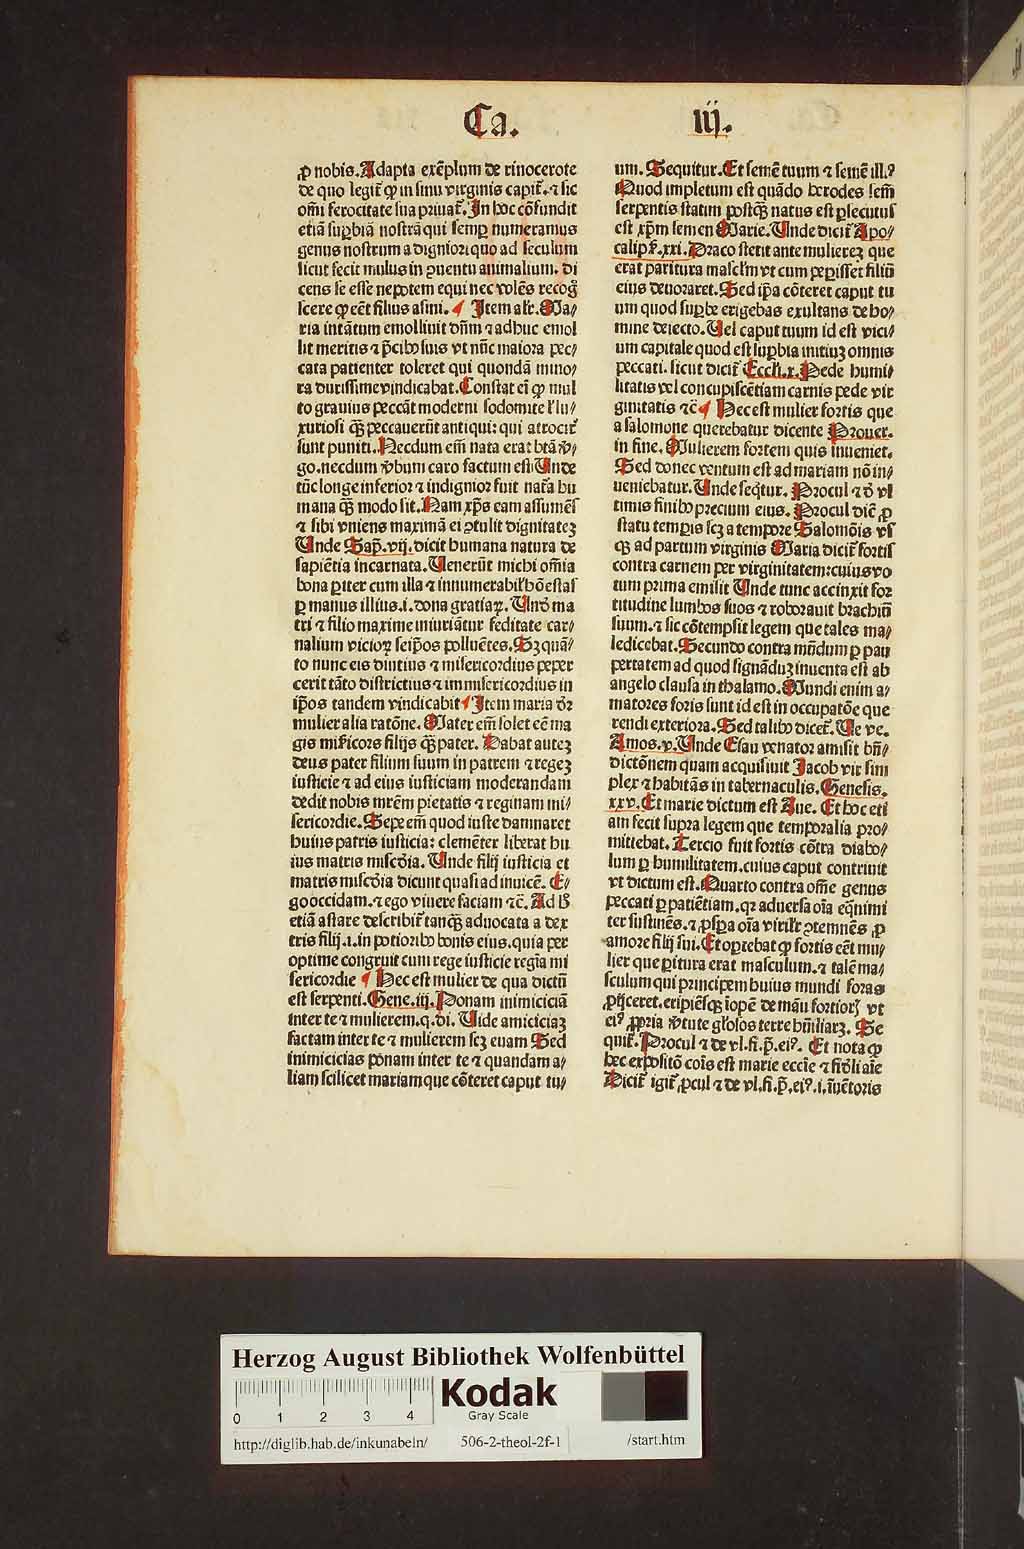 Ca. iij.
ꝓ nobis. Adapta exẽplum de rinocerote
de quo legit᷑ ꝙ in sinu virginis capit᷑. ⁊ sic
om̃i ferocitate sua priuat᷑. In hoc cõfundit
etiã suꝑbiã nostrã qui semꝑ numeramus
genus nostrum a digniori quo ad seculum
sicut fecit mulus in ꝯuentu animalium. di
cens se esse nepotem equi nec volẽs recog̃
scere ꝙ eẽt filius asini. ¶ Item alr̃. Ma⸗
ria intãtum emolliuit dñm ⁊ adhuc emol
lit meritis ⁊ p̃cibꝰ suis vt nũc maiora pec⸗
cata patienter toleret qui quondã mino⸗
ra durissime vindicabat. Constat eĩ ꝙ mul
to grauius peccãt moderni sodomite ⁊ lu⸗
xuriosi q̃ꝫ peccauerũt antiqui: qui atrocit᷑
sunt puniti. Necdum em̃ nata erat btã ꝟ⸗
go. necdum ꝟbum caro factum est Unde
tũc longe inferior ⁊ indignior fuit nat᷑a hu
mana q̃ꝫ modo sit. Nam xp̃s eam assumẽs
⁊ sibi vniens maximã ei ꝯtulit dignitatez
Unde Sap̃. vij. dicit humana natura de
sapiẽtia incarnata. Venerũt michi om̃ia
bona ꝑiter cum illa ⁊ innumerabil᷑ hõestas
ꝑ manus illius .i. dona gratiaꝝ. Unð ma
tri ⁊ filio maxime iniuriãtur feditate car⸗
nalium vicioꝝ seip̃os polluẽtes. Sꝫ quã⸗
to nunc eis diutius ⁊ misericordius peper
cerit tãto districtius ⁊ immisericordius in
ip̃os tandem vindicabit ¶ Item maria ðꝛ
mulier alia ratõne. Mater em̃ solet eẽ ma
gis mĩcors filijs q̃ꝫ pater. Dabat autez
deus pater filium suum in patrem ⁊ regez
iusticie ⁊ ad eius iusticiam moderandam
dedit nobis mr̃em pietatis ⁊ reginam mi⸗
sericordie. Sepe em̃ quod iuste damnaret
huius patris iusticia: clemẽter liberat hu
ius matris miscðia. Unde filij iusticia et
matris miscðia dicunt quasi ad inuicẽ. E⸗
go occidam. ⁊ ego viuere faciam ⁊c̃. Ad h̾
etiã astare describit᷑ tanq̃ꝫ aduocata a dex
tris filij .i. in potioribꝰ bonis eius. quia per
optime congruit cum rege iusticie regĩa mi
sericordie ¶ Hec est mulier de qua dictũ
est serpenti. Gene. iij. Ponam inimiciciã
inter te ⁊ mulierem. q. di. Vide amiciciaz
factam inter te ⁊ mulierem scꝫ euam Sed
inimicicias ponam inter te ⁊ quandam a⸗
liam scilicet mariam que cõteret caput tu⸗
um. Sequitur. Et semẽ tuum ⁊ semẽ illꝰ
Quod impletum est quãdo herodes sem̃
serpentis statim postq̃ꝫ natus est ꝑsecutus
est xp̃m semen Marie. Unde dicit᷑ Apo⸗
calip̃. xxi. Draco stetit ante mulierez que
erat paritura masclm̃ vt cum peꝑisset filiũ
eius deuoraret. Sed ip̃a cõteret caput tu
um quod suꝑbe erigebas exultans de ho⸗
mine deiecto. Vel caput tuum id est vici⸗
um capitale quod est suꝑbia initiuꝫ omnis
peccati. sicut dicit᷑ Eccli. x. Pede humi⸗
litatis vel concupiscẽtiam carnis pede vir
ginitatis ⁊c̃ ¶ Hec est mulier fortis que
a salomone querebatur dicente Prouer.
in fine. Mulierem fortem quis inueniet.
Sed donec ventum est ad mariam nõ in⸗
ueniebatur. Unde seq̃tur. Procul ⁊ ð vl
timis finibꝰ precium eius. Procul dic̃ ꝓ
statu temꝑis scꝫ a tempore Salomõis vs
q̃ꝫ ad partum virginis Maria dicit᷑ fortis
contra carnem per virginitatem: cuius vo
tum prima emisit Unde tunc accinxit for
titudine lumbos suos ⁊ roborauit brachiũ
suum. ⁊ sic cõtempsit legem que tales ma⸗
ledicebat. Secundo contra mũdum ꝑ pau
pertatem ad quod signãduꝫ inuenta est ab
angelo clausa in thalamo. Mundi enim a⸗
matores foris sunt id est in occupatõe que
rendi exteriora. Sed talibꝰ dicet᷑. Ve ve.
Amos. v. Unde Esau venator amisit bñ⸗
dictõnem quam acquisiuit Jacob vir sim
plex ⁊ habitãs in tabernaculis. Genesis.
xxv. Et marie dictum est Aue. Et hoc eti
am fecit supra legem que temporalia pro⸗
mittebat. Tercio fuit fortis cõtra diabo⸗
lum ꝑ humilitatem. cuius caput contriuit
vt dictum est. Quarto contra om̃e genus
peccati ꝑ patiẽtiam. qꝛ aduersa oĩa eq̃nimi
ter sustinẽs. ⁊ ꝓsꝑa oĩa viril᷑r ꝯtemnẽs ꝓ
amore filij sui. Et oꝑtebat ꝙ fortis eẽt mu⸗
lier que ꝑitura erat masculum. ⁊ talẽ ma⸗
sculum qui principem huius mundi foras
ꝓijceret. eripiẽsq̃ꝫ iopẽ de mãu fortioꝝ vt
eiꝰ ꝓpria ꝟtute gl̃osos terre hũiliarꝫ. Se
quit᷑. Procul ⁊ de vl. fi. p̃. eiꝰ. Et nota ꝙ
hec expositõ cõis est marie eccĩe ⁊ fiðli aĩe
Dicit᷑ igit᷑ ꝓcul ⁊ de vl. fi. p̃. eiꝰ .i. ĩuẽtoris
Herzog August Bibliothek Wolfenbüttel
0 1 2 3 4
Kodak
Gray Scale
http://diglib.hab.de/inkunabeln/ 506-2-theol-2f-1 /start.htm